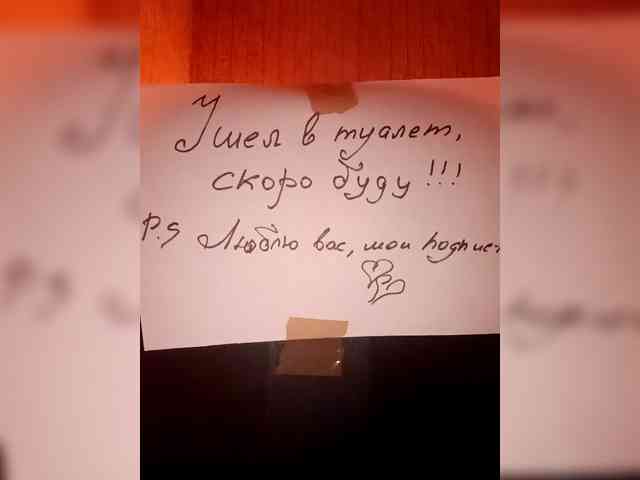 Ушел в туалет,
скоро буду !!!
P.S Люблю вас, мои подпис